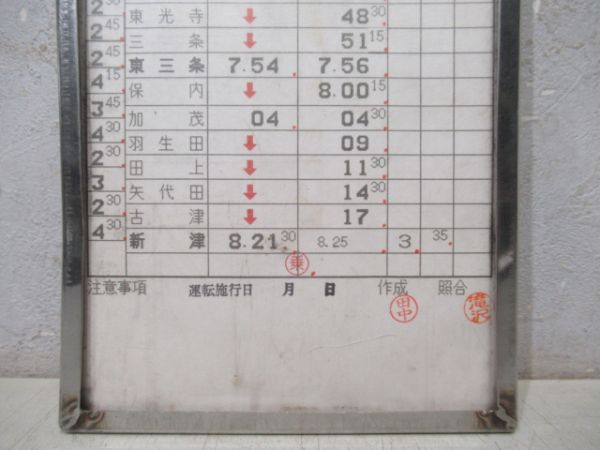 2 30 東光寺 ↓ 48 30
2 45 三条 ↓ 51 15
2 45 東三条 7.54 7.56
4 15 保内 ↓ 8.00 15
3 45 加茂 04 04 30
4 30 羽生田 ↓ 09
2 30 田上 ↓ 11 30
3 矢代田 ↓ 14 30
2 30 古津 ↓ 17
4 30 新津 8.21 30 8.25 3 35
乗
注意事項 運転施行日 月 日 作成 照合
田中 滝沢